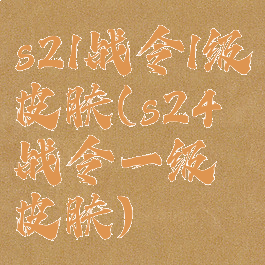 s21战令1级
皮肤(s24
战令一级
皮肤)